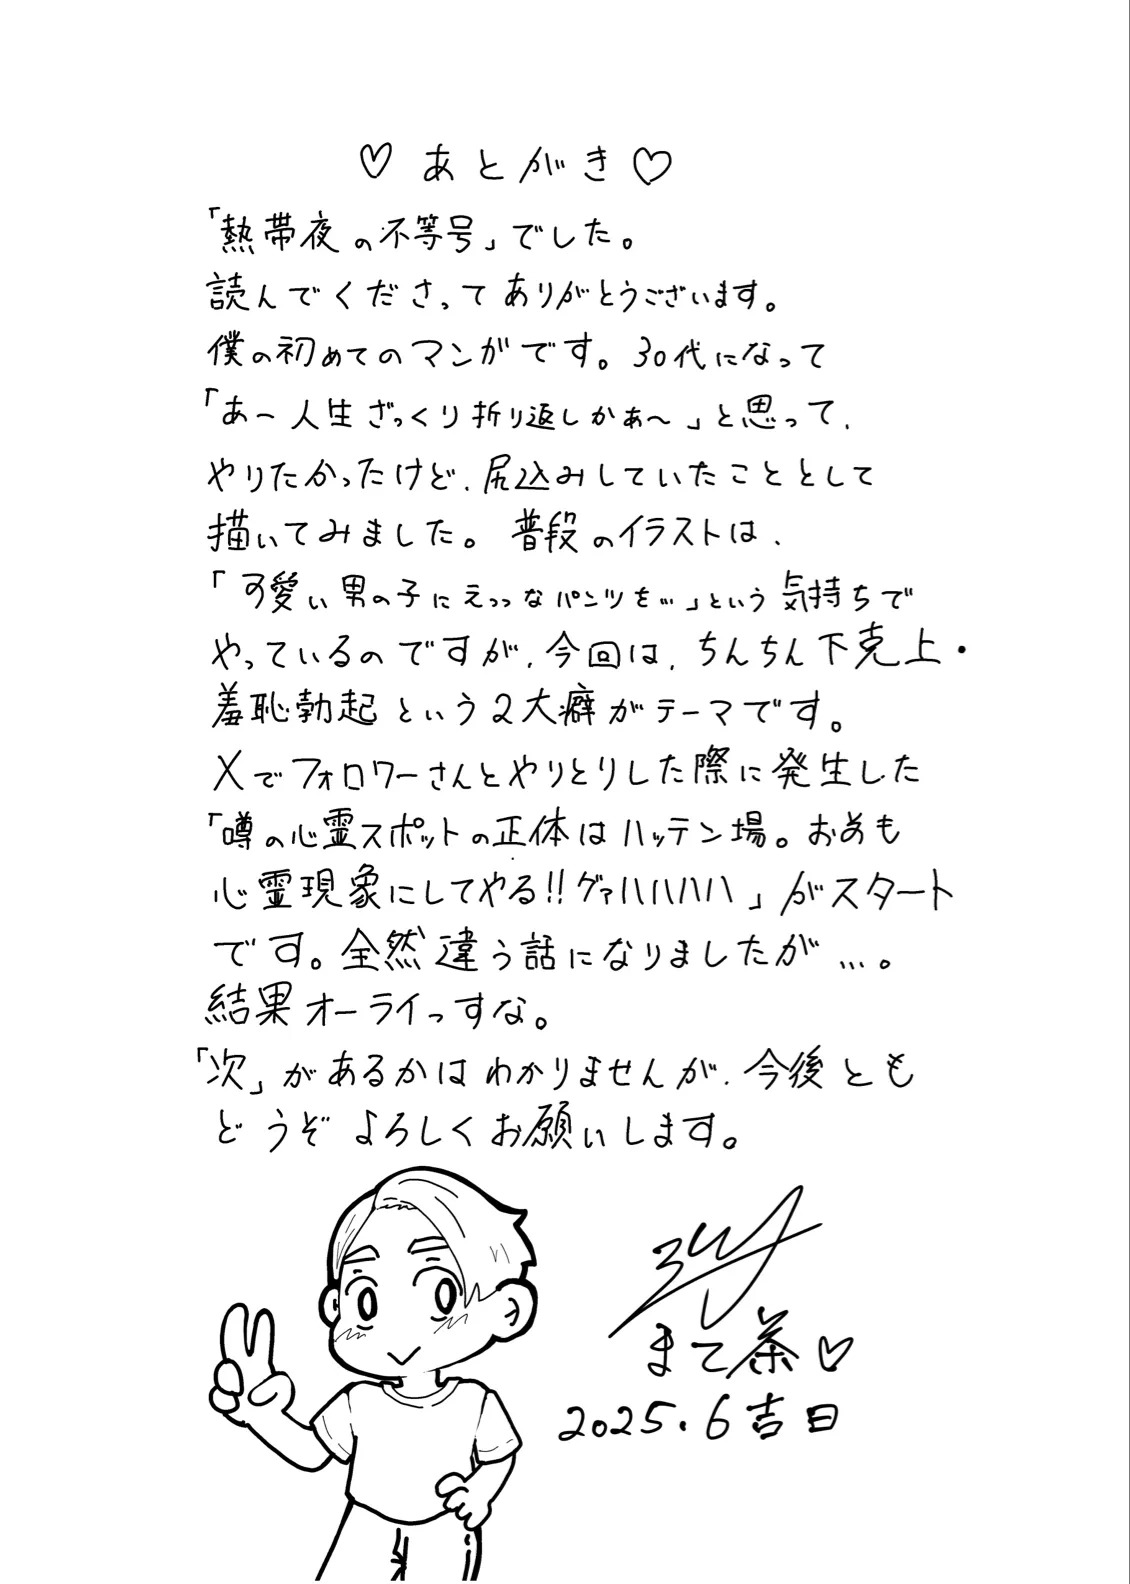 ♡あとがき♡
「熱帯夜の不等号」でした。
読んでくださってありがとうございます。
僕の初めてのマンガです。30代になって
「あ〜人生ざっくり折り返しかぁ〜」と思って、
やりたかったけど、尻込みしていたこととして
描いてみました。普段のイラストは、
「可愛い男の子にえっっなパンツを…」という気持ちで
やっているのですが、今回は、ちんちん下克上・
羞恥勃起という2大癖がテーマです。
Xでフォロワーさんとやりとりした際に発生した
「噂の心霊スポットの正体はハッテン場。おめえも
心霊現象にしてやる!!グァハハハハ」がスタート
です。全然違う話になりましたが…。
結果オーライっすな。
「次」があるかはわかりませんが、今後とも
どうぞよろしくお願いします。
まて茶♡
2025.6吉日